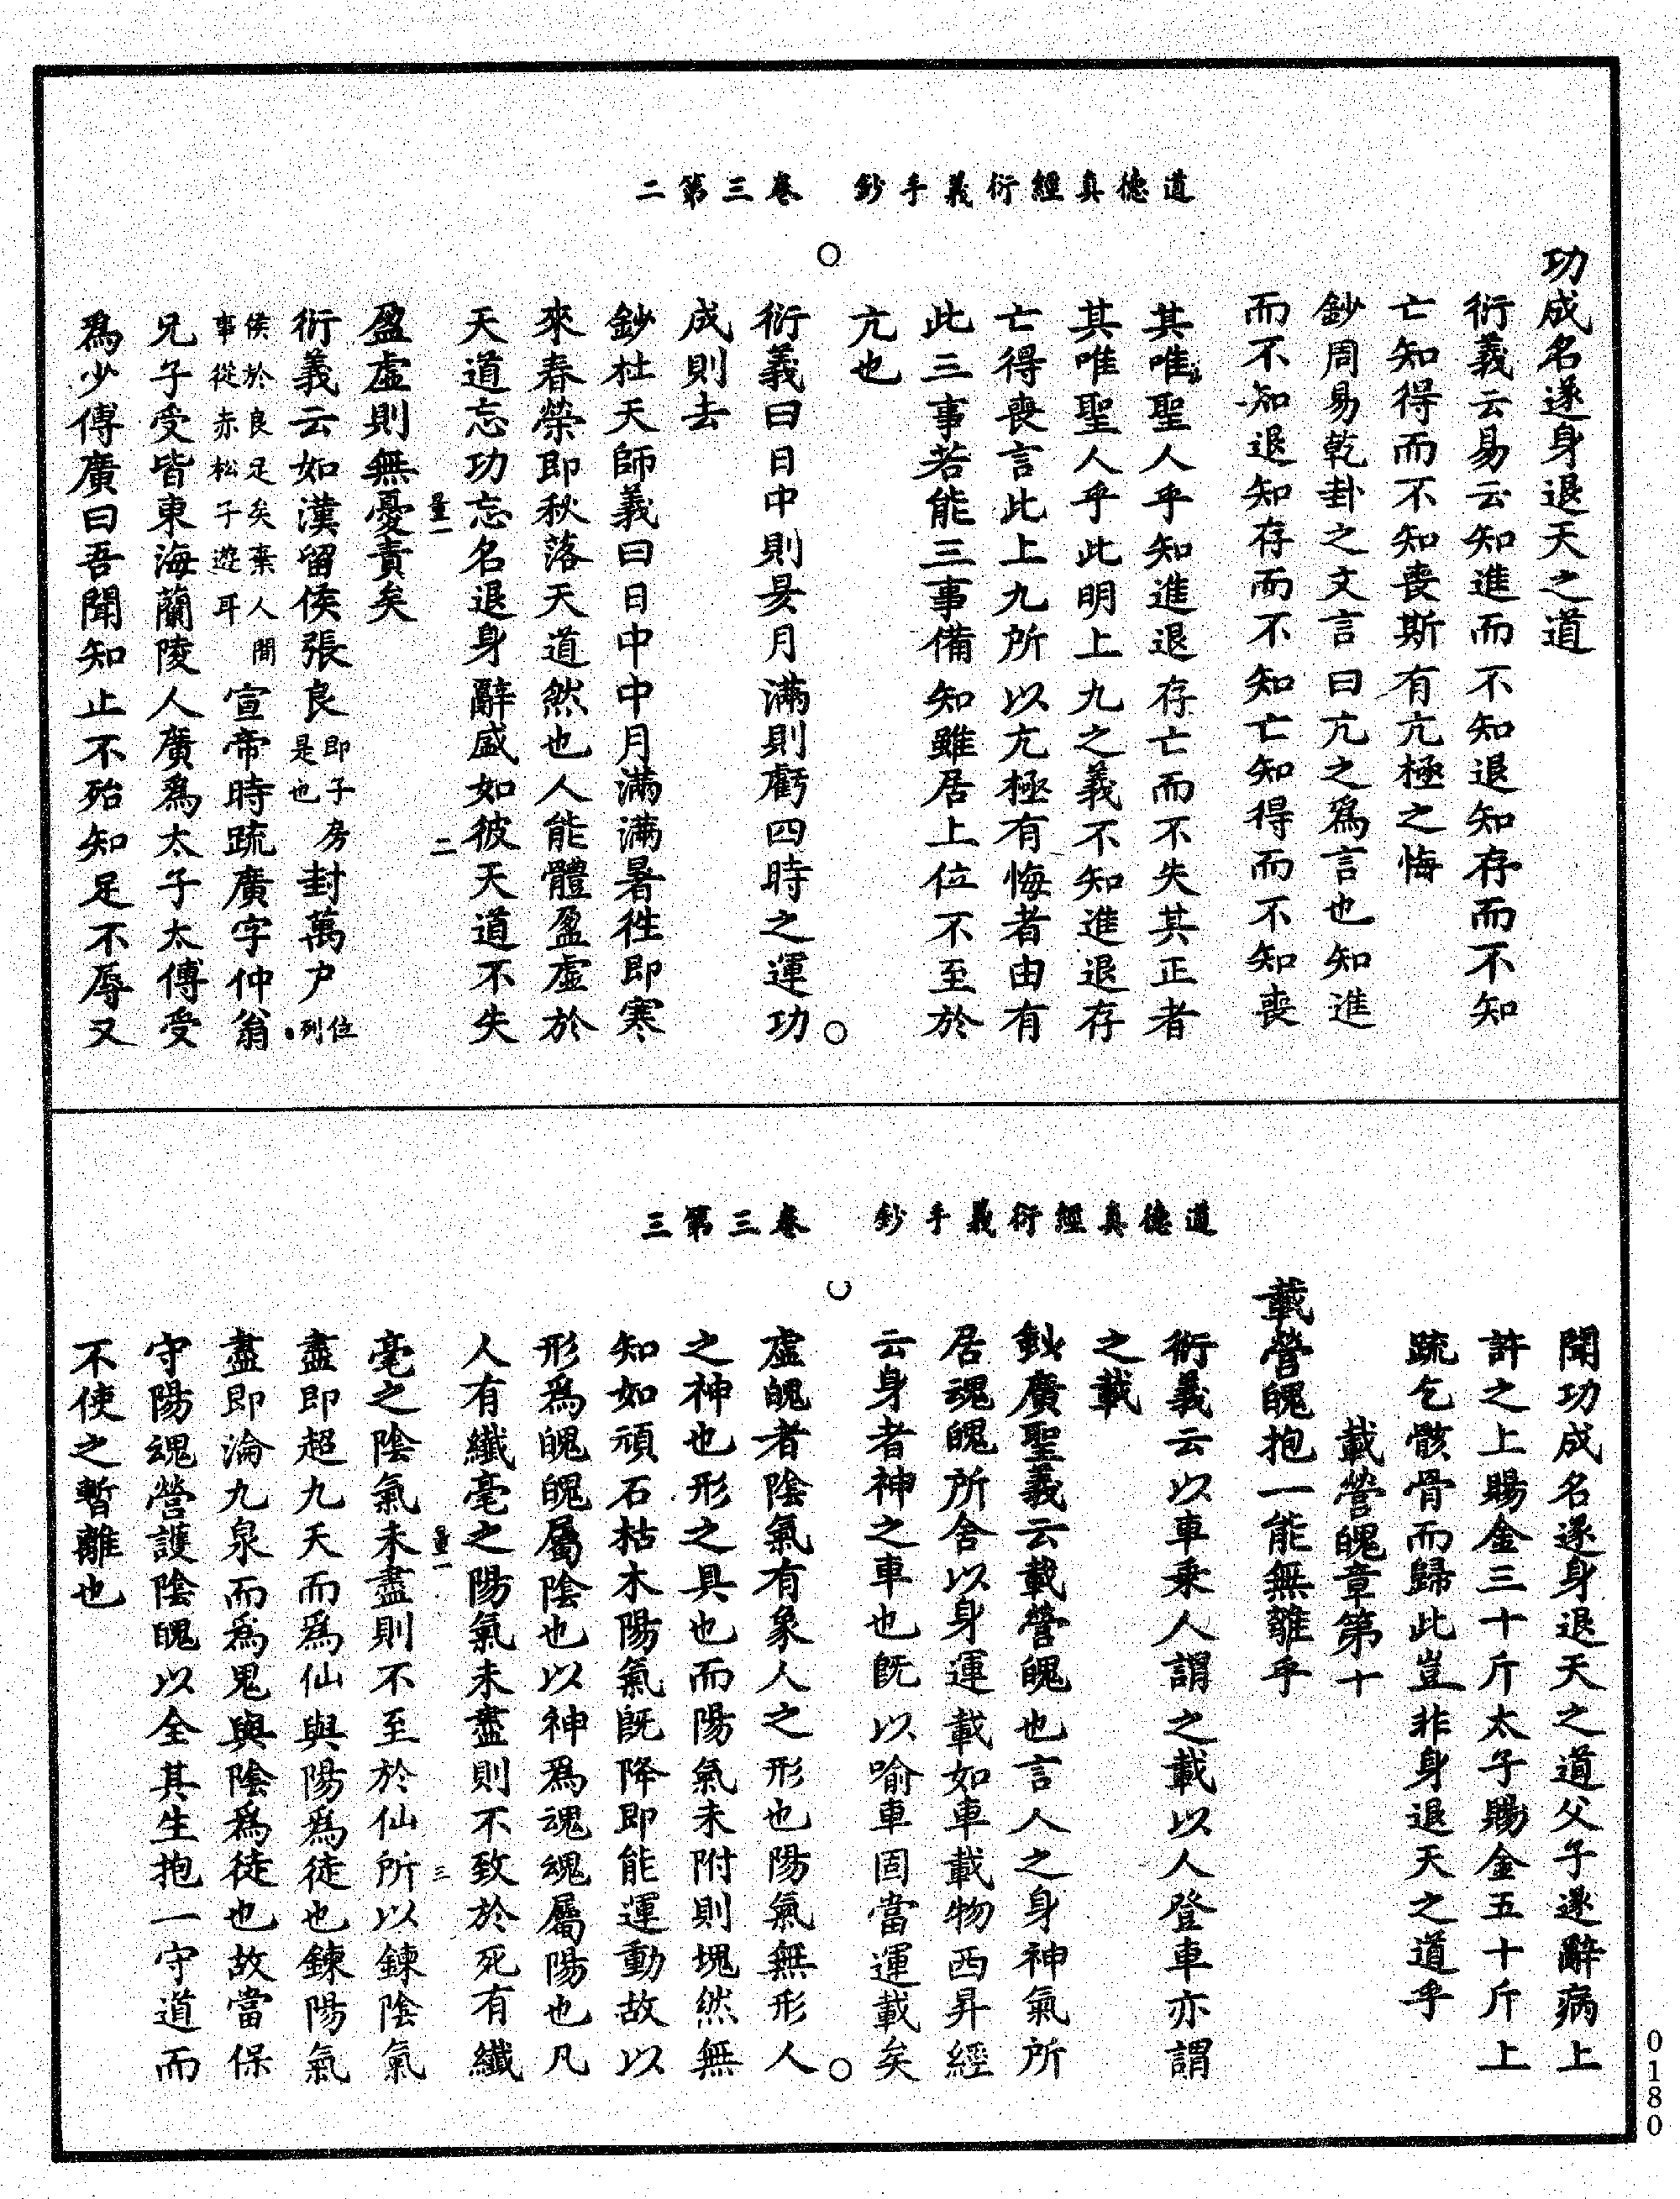 道德真經衍義手鈔　卷三第二
功成名遂身退天之道
衍義云易云知進而不知退知存而不知
亡知得而不知喪斯有亢極之悔
鈔周易乾卦之文言曰亢之為言也知進
而不知退知存而不知亡知得而不知喪
其唯聖人乎知進退存亡而不失其正者
其唯聖人乎此明上九之義不知進退存
亡得喪言此上九所以亢極有悔者由有
此三事若能三事備知雖居上位不至於
亢也
衍義曰日中則昃月滿則虧四時之運功
成則去
鈔杜天師義曰日中中月滿滿暑徃即寒
來春榮即秋落天道然也人能體盈虛於
天道忘功忘名退身辭盛如彼天道不失
量一　二
盈虛則無憂責矣
衍義云如漢留侯張良即子房是也封萬户位列
侯於良足矣棄人間事從赤松子遊耳宣帝時疏廣字仲翁
兄子受皆東海蘭陵人廣為太子太傅受
為少傅廣曰吾聞知止不殆知足不辱又
道德真經衍義手鈔　卷三第三
聞功成名遂身退天之道父子遂辭病上
許之上賜金三十斤太子賜金五十斤上
疏乞骸骨而歸此豈非身退天之道乎
載營魄章第十
載營魄抱一能無離乎
衍義云以車乗人謂之載以人登車亦謂
之載
鈔廣聖義云載營魄也言人之身神氣所
居魂魄所舍以身運載如車載物西昇經
云身者神之車也旣以喻車固當運載矣
虛魄者陰氣有象人之形也陽氣無形人
之神也形之具也而陽氣未附則塊然無
知如頑石枯木陽氣旣降即能運動故以
形為魄魄屬陰也以神為魂魂屬陽也凡
人有纖毫之陽氣未盡則不致於死有纖
量一　三
毫之陰氣未盡則不至於仙所以鍊陰氣
盡即超九天而為仙與陽為徒也鍊陽氣
盡即淪九泉而為鬼與陰為徒也故當保
守陽魂營護陰魄以全其生抱一守道而
不使之暫離也
0180